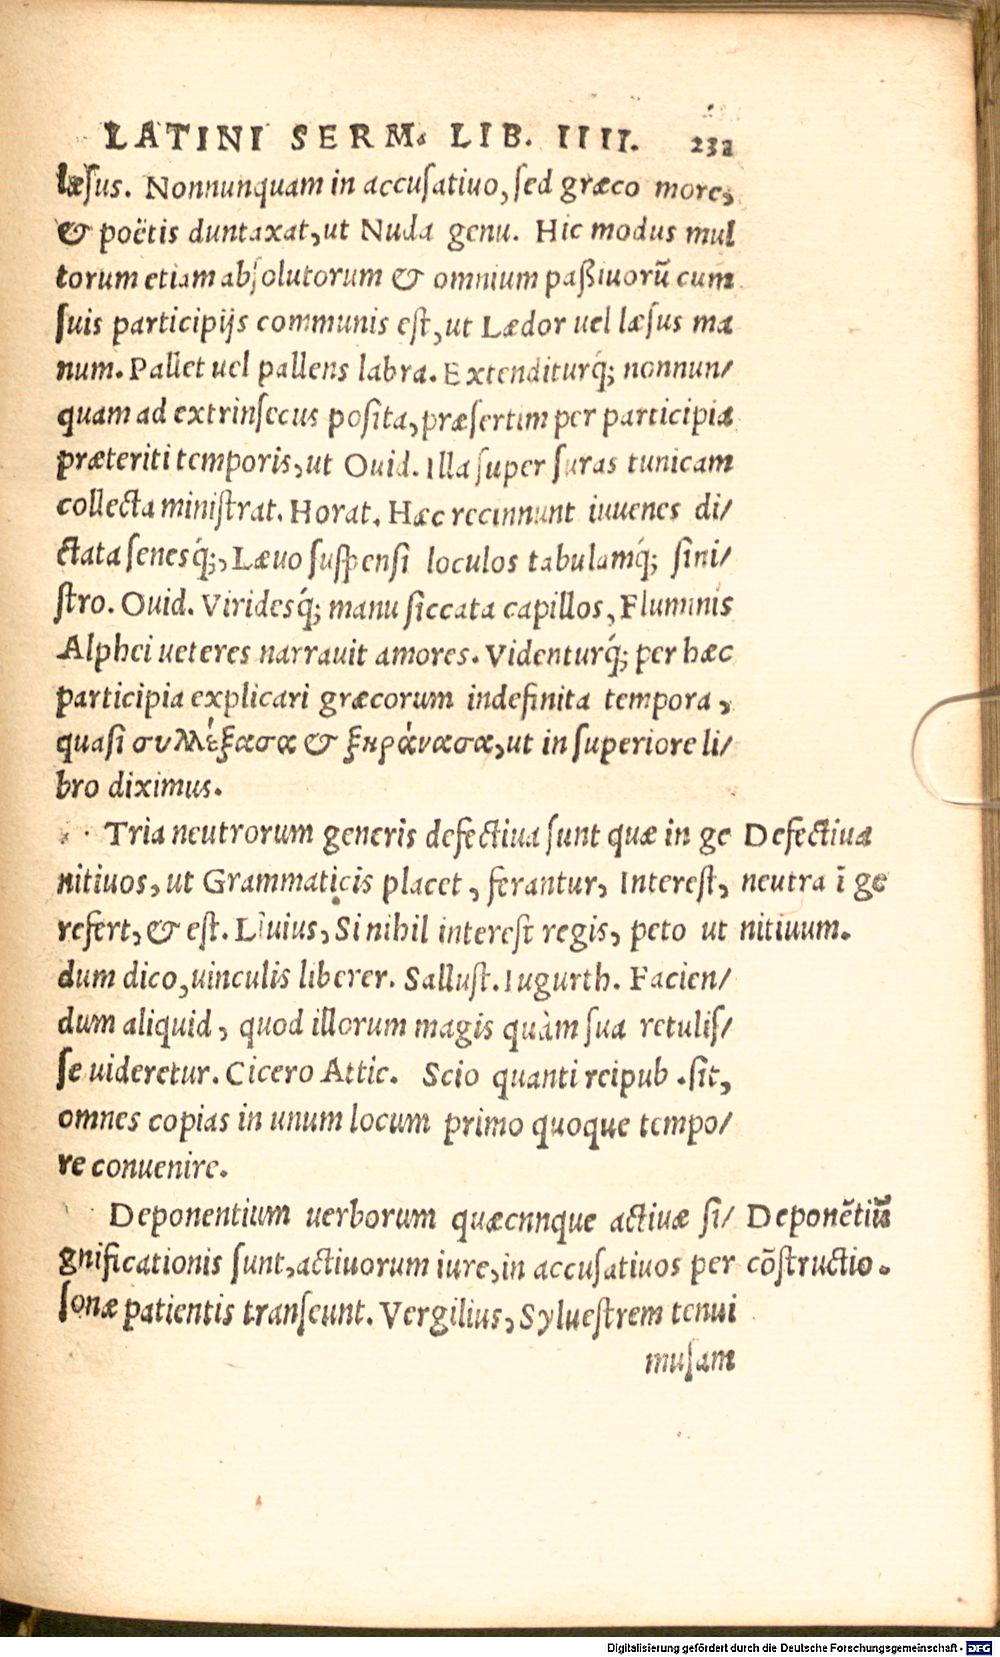 LATINI SERM. LIB. IIII. 232
læsus. Nonnunquam in accusatiuo, sed græco more,
& poëtis duntaxat, ut Nuda genu. Hic modus mul
torum etiam absolutorum & omnium paßiuorũ cum
suis participijs communis est, ut Lædor uel læsus ma
num. Pallet uel pallens labra. Extenditurq́; nonnun/
quam ad extrinsecus posita, præsertim per participia
præteriti temporis, ut Ouid. Illa super suras tunicam
collecta ministrat. Horat. Hæc recinnunt iuuenes di/
ctata senesq́;, Læuo suspensi loculos tabulamq́; sini/
stro. Ouid. Viridesq́; manu siccata capillos, Fluminis
Alphei ueteres narrauit amores. Videnturq́; per hæc
participia explicari græcorum indefinita tempora,
quasi συλλέξασα & ξηράνασα, ut in superiore li/
bro diximus.
Tria neutrorum generis defectiua sunt quæ in ge Defectiua
nitiuos, ut Grammaticis placet, ferantur, Interest, neutra ī ge
refert, & est. Liuius, Si nihil interest regis, peto ut nitiuum.
dum dico, uinculis liberer. Sallust. Iugurth. Facien/
dum aliquid, quod illorum magis quàm sua retulis/
se uideretur. Cicero Attic. Scio quanti reipub. sit,
omnes copias in unum locum primo quoque tempo/
re conuenire.
Deponentium uerborum quæcnnque actiuæ si/ Deponẽtiũ
gnificationis sunt, actiuorum iure, in accusatiuos per cõstructio.
sonæ patientis transeunt. Vergilius, Syluestrem tenui
musam
Digitalisierung gefördert durch die Deutsche Forschungsgemeinschaft - DFG